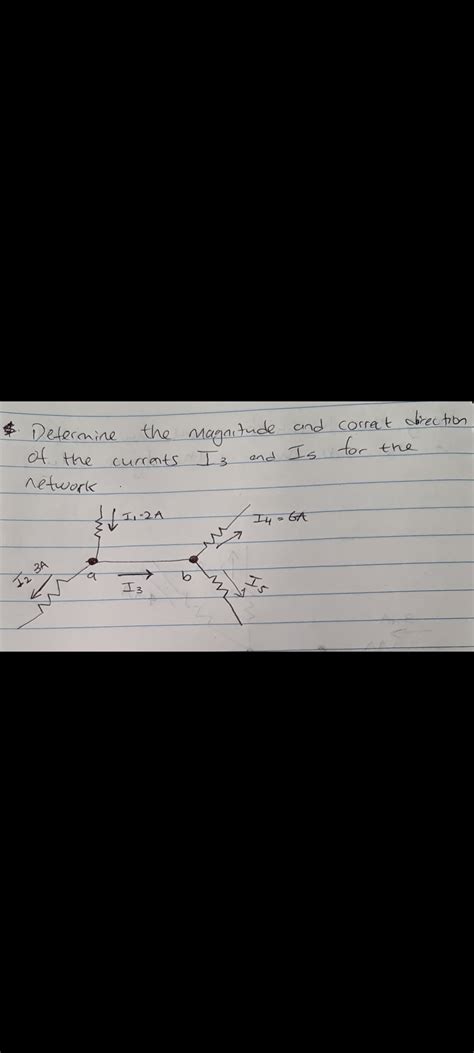 Determine the magnitude and correct direction
of the currents I3 and I5 for the
network.
I1=2A
I4=6A
I2 3A
a
I3
b
I5